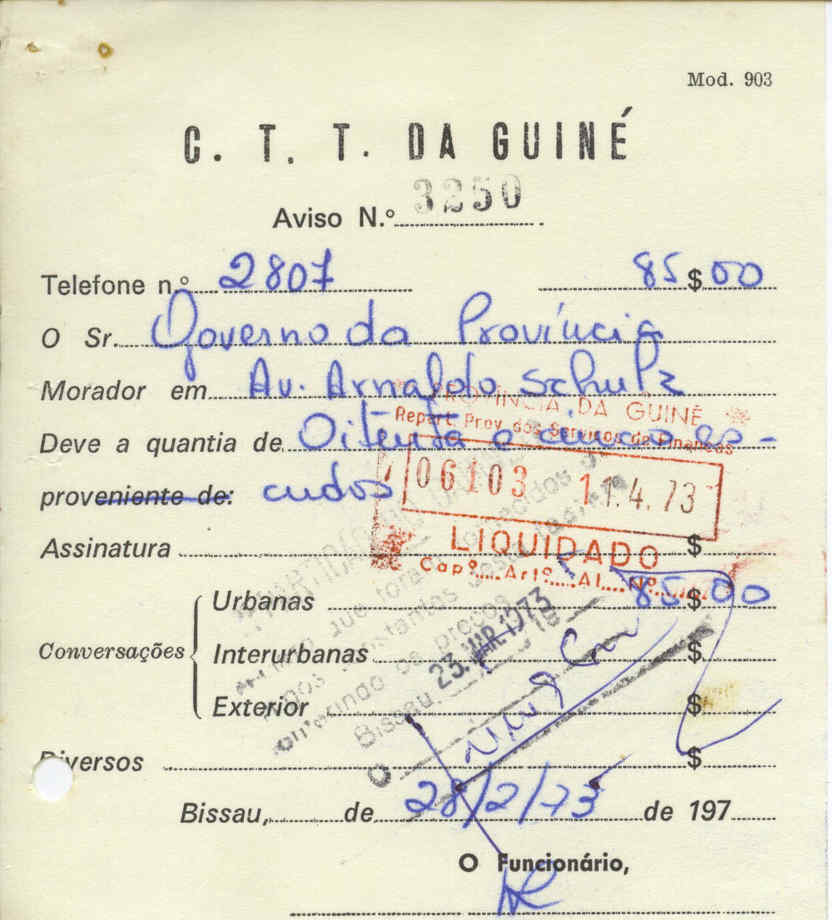 Mod. 903
C. T. T. DA GUINÉ
Aviso N.º 3250
Telefone n.º 2807 85 $ 00
O Sr. Governo da Província
Morador em Av. Arnaldo Schulz
PROVÍNCIA DA GUINÉ
Repart. Prov. dos Serviços de Finanças
Deve a quantia de Oitenta e cinco es-
proveniente de: cudos
06103 11.4.73
LIQUIDADO
Assinatura $
Cap.º Art.º Al. Nº
Urbanas 85 $ 00
Conversações
Interurbanas $
Exterior $
que foram fornecidos
constantes desta
de preços
Bissau, 23. MAR. 1973
O
Diversos $
Bissau, de 28/2/73 de 197
O Funcionário,